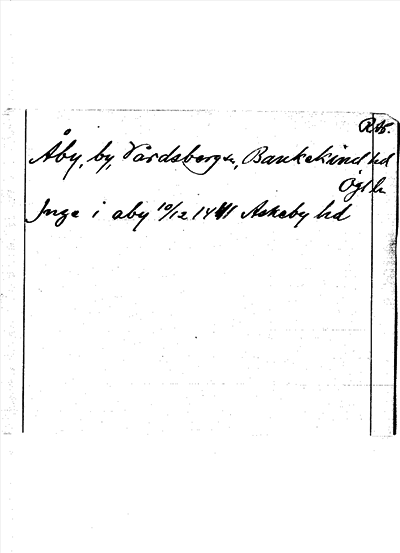 R fb.
Åby, by, Vårdsbergs sn, Bankekind hd
Ögl ln
Inge i aby 10/12 1441 Askeby hd